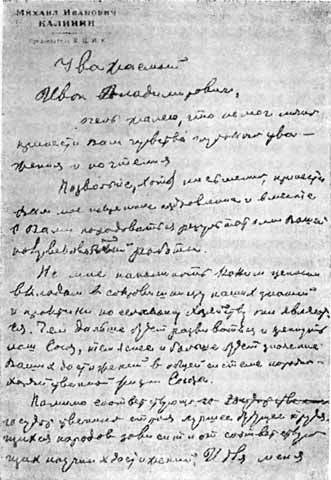 Михаил Иванович
КАЛИНИН
Председатель В.Ц.И.К.
Уважаемый
Иван Владимирович,
очень жалею, что не мог лично
принести Вам чувства глубокого ува-
жения и почтения
Позвольте, хотя письменно, принести
Вам мое искреннее поздравление и вместе
с Вами порадоваться результатами Вашей
полувековой работы.
Не мне напоминать каким ценным
вкладом в сокровищницу наших знаний
и практики по сельскому хозяйству они являют-
ся. Чем дальше будет развиваться и
наш Союз, тем яснее и больше будет значение
Ваших достижений в общей системе народно-
хозяйственной жизни Союза.
Помимо соответствующего
государственного строя лучшее будущее трудя-
щихся народов зависит и от соответствую-
щих научных достижений. И для меня